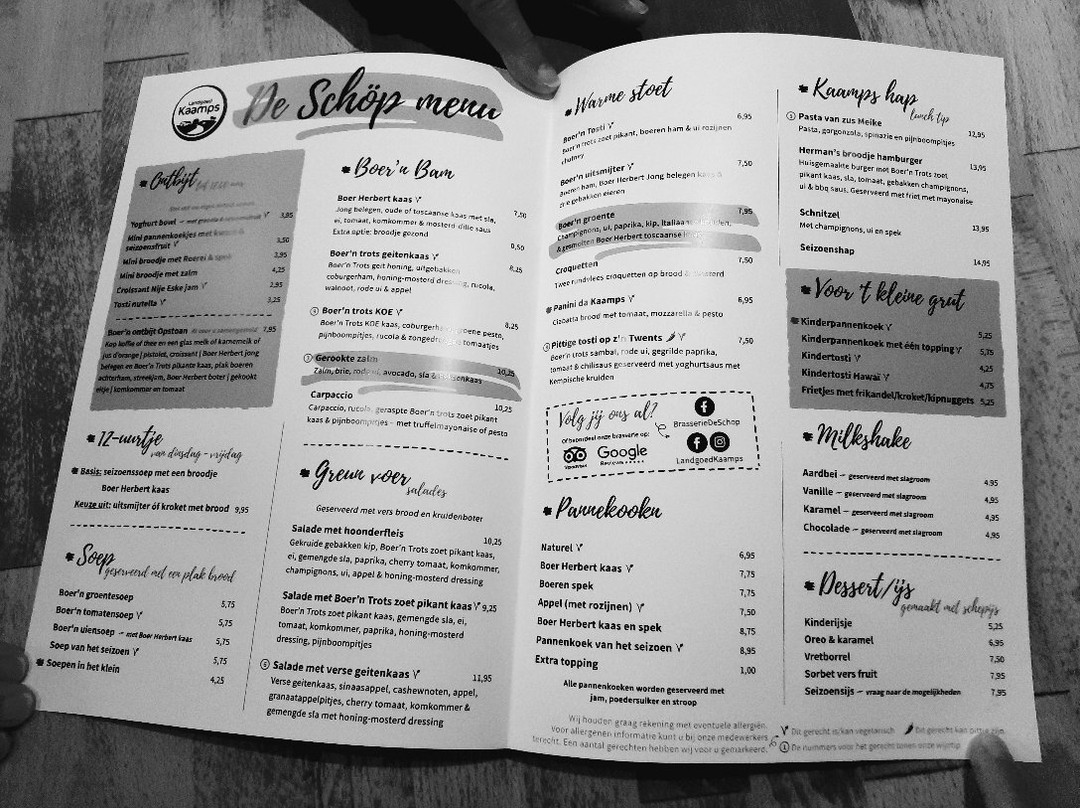 Landgoed
Kaamps
De Schöp menu
Ontbijt
Yoghurt bowl
3,95
Mini pannenkoekjes met
seizoensfruit
3,50
Mini broodje met Roerei &
3,95
Mini broodje met zalm
4,25
Croissant Nije Eske jam
2,95
Tosti nutella
3,25
Boer'n ontbijt Opstoan
7,95
Kop koffie of thee en een glas melk of karnemelk of
jus d'orange | pistolet, croissant | Boer Herbert jong
belegen en Boer'n Trots pikante kaas, plak boeren
achterham, streekjam, Boer Herbert boter | gekookt
eitje | komkommer en tomaat
12-uurtje
van dinsdag - vrijdag
Basis: seizoenssoep met een broodje
Boer Herbert kaas
Keuze uit: uitsmijter óf kroket met brood 9,95
Soep
geserveerd met een plak brood
Boer'n groentesoep
5,75
Boer'n tomatensoep
5,75
Boer'n uiensoep ~ met Boer Herbert kaas
5,75
Soep van het seizoen
5,75
Soepen in het klein
4,25
Boer'n Bam
Boer Herbert kaas
7,50
Jong belegen, oude of toscaanse kaas met sla,
ei, tomaat, komkommer & mosterd-dille saus
Extra optie: broodje gezond
9,50
Boer'n trots geitenkaas
8,25
Boer'n Trots geit honing, uitgebakken
coburgerham, honing-mosterd dressing, rucola,
walnoot, rode ui & appel
4 Boer'n trots KOE
8,25
Boer'n Trots KOE kaas, coburgerham, groene pesto,
pijnboompitjes, rucola & zongedroogde tomaatjes
Gerookte zalm
10,25
Zalm, brie, rode ui, avocado, sla &
Carpaccio
10,25
Carpaccio, rucola, geraspte Boer'n trots zoet pikant
kaas & pijnboompitjes ~ met truffelmayonaise of pesto
Greun voer
salades
Geserveerd met vers brood en kruidenboter
Salade met hoonderfleis
10,25
Gekruide gebakken kip, Boer'n Trots zoet pikant kaas,
ei, gemengde sla, paprika, cherry tomaat, komkommer,
champignons, ui, appel & honing-mosterd dressing
Salade met Boer'n Trots zoet pikant kaas 9,25
Boer'n Trots zoet pikant kaas, gemengde sla, ei,
tomaat, komkommer, paprika, honing-mosterd
dressing, pijnboompitjes
5 Salade met verse geitenkaas
11,95
Verse geitenkaas, sinaasappel, cashewnoten, appel,
granaatappelpitjes, cherry tomaat, komkommer &
gemengde sla met honing-mosterd dressing
Warme stoet
Boer'n Tosti
6,95
Boer'n trots zoet pikant, boeren ham & ui rozijnen
chutney
Boer'n uitsmijter
7,50
Boeren ham, Boer Herbert Jong belegen kaas &
drie gebakken eieren
Boer'n groente
7,95
Champignons, ui, paprika, kip, Italiaanse kruiden,
& gesmolten Boer Herbert toscaanse
Croquetten
7,50
Twee rundvlees croquetten op brood & mosterd
Panini da Kaamps
6,95
Ciabatta brood met tomaat, mozzarella & pesto
Pittige tosti op z'n Twents
7,50
Boer'n trots sambal, rode ui, gegrilde paprika,
tomaat & chilisaus geserveerd met yoghurtsaus met
Kempische kruiden
Volg jij ons al?
Of beoordeel onze brasserie op:
Google
Reviews
BrasserieDeSchop
LandgoedKaamps
Pannekookn
Naturel
6,95
Boer Herbert kaas
7,75
Boeren spek
7,75
Appel (met rozijnen)
7,50
Boer Herbert kaas en spek
8,75
Pannenkoek van het seizoen
8,95
Extra topping
1,00
Alle pannenkoeken worden geserveerd met
jam, poedersuiker en stroop
Wij houden graag rekening met eventuele allergiën.
Voor allergenen informatie kunt u bij onze medewerkers
terecht. Een aantal gerechten hebben wij voor u gemarkeerd.
Kaamps hap
lunch tip
1 Pasta van zus Meike
12,95
Pasta, gorgonzola, spinazie en pijnboompitjes
Herman's broodje hamburger
13,95
Huisgemaakte burger met Boer'n Trots zoet
pikant kaas, sla, tomaat, gebakken champignons,
ui & bbq saus. Geserveerd met friet met mayonaise
Schnitzel
13,95
Met champignons, ui en spek
Seizoenshap
14,95
Voor 't kleine grut
Kinderpannenkoek
5,25
Kinderpannenkoek met één topping
5,75
Kindertosti
4,25
Kindertosti Hawaï
4,75
Frietjes met frikandel/kroket/kipnuggets 5,25
Milkshake
Aardbei ~ geserveerd met slagroom
4,95
Vanille ~ geserveerd met slagroom
4,95
Karamel ~ geserveerd met slagroom
4,95
Chocolade ~ geserveerd met slagroom
4,95
Dessert/ijs
gemaakt met schepijs
Kinderijsje
5,25
Oreo & karamel
6,95
Vretborrel
7,50
Sorbet vers fruit
7,95
Seizoensijs ~ vraag naar de mogelijkheden
7,95
Dit gerecht is/kan vegetarisch
Dit gerecht kan pittig zijn
1 De nummers voor het gerecht tonen onze wijntip